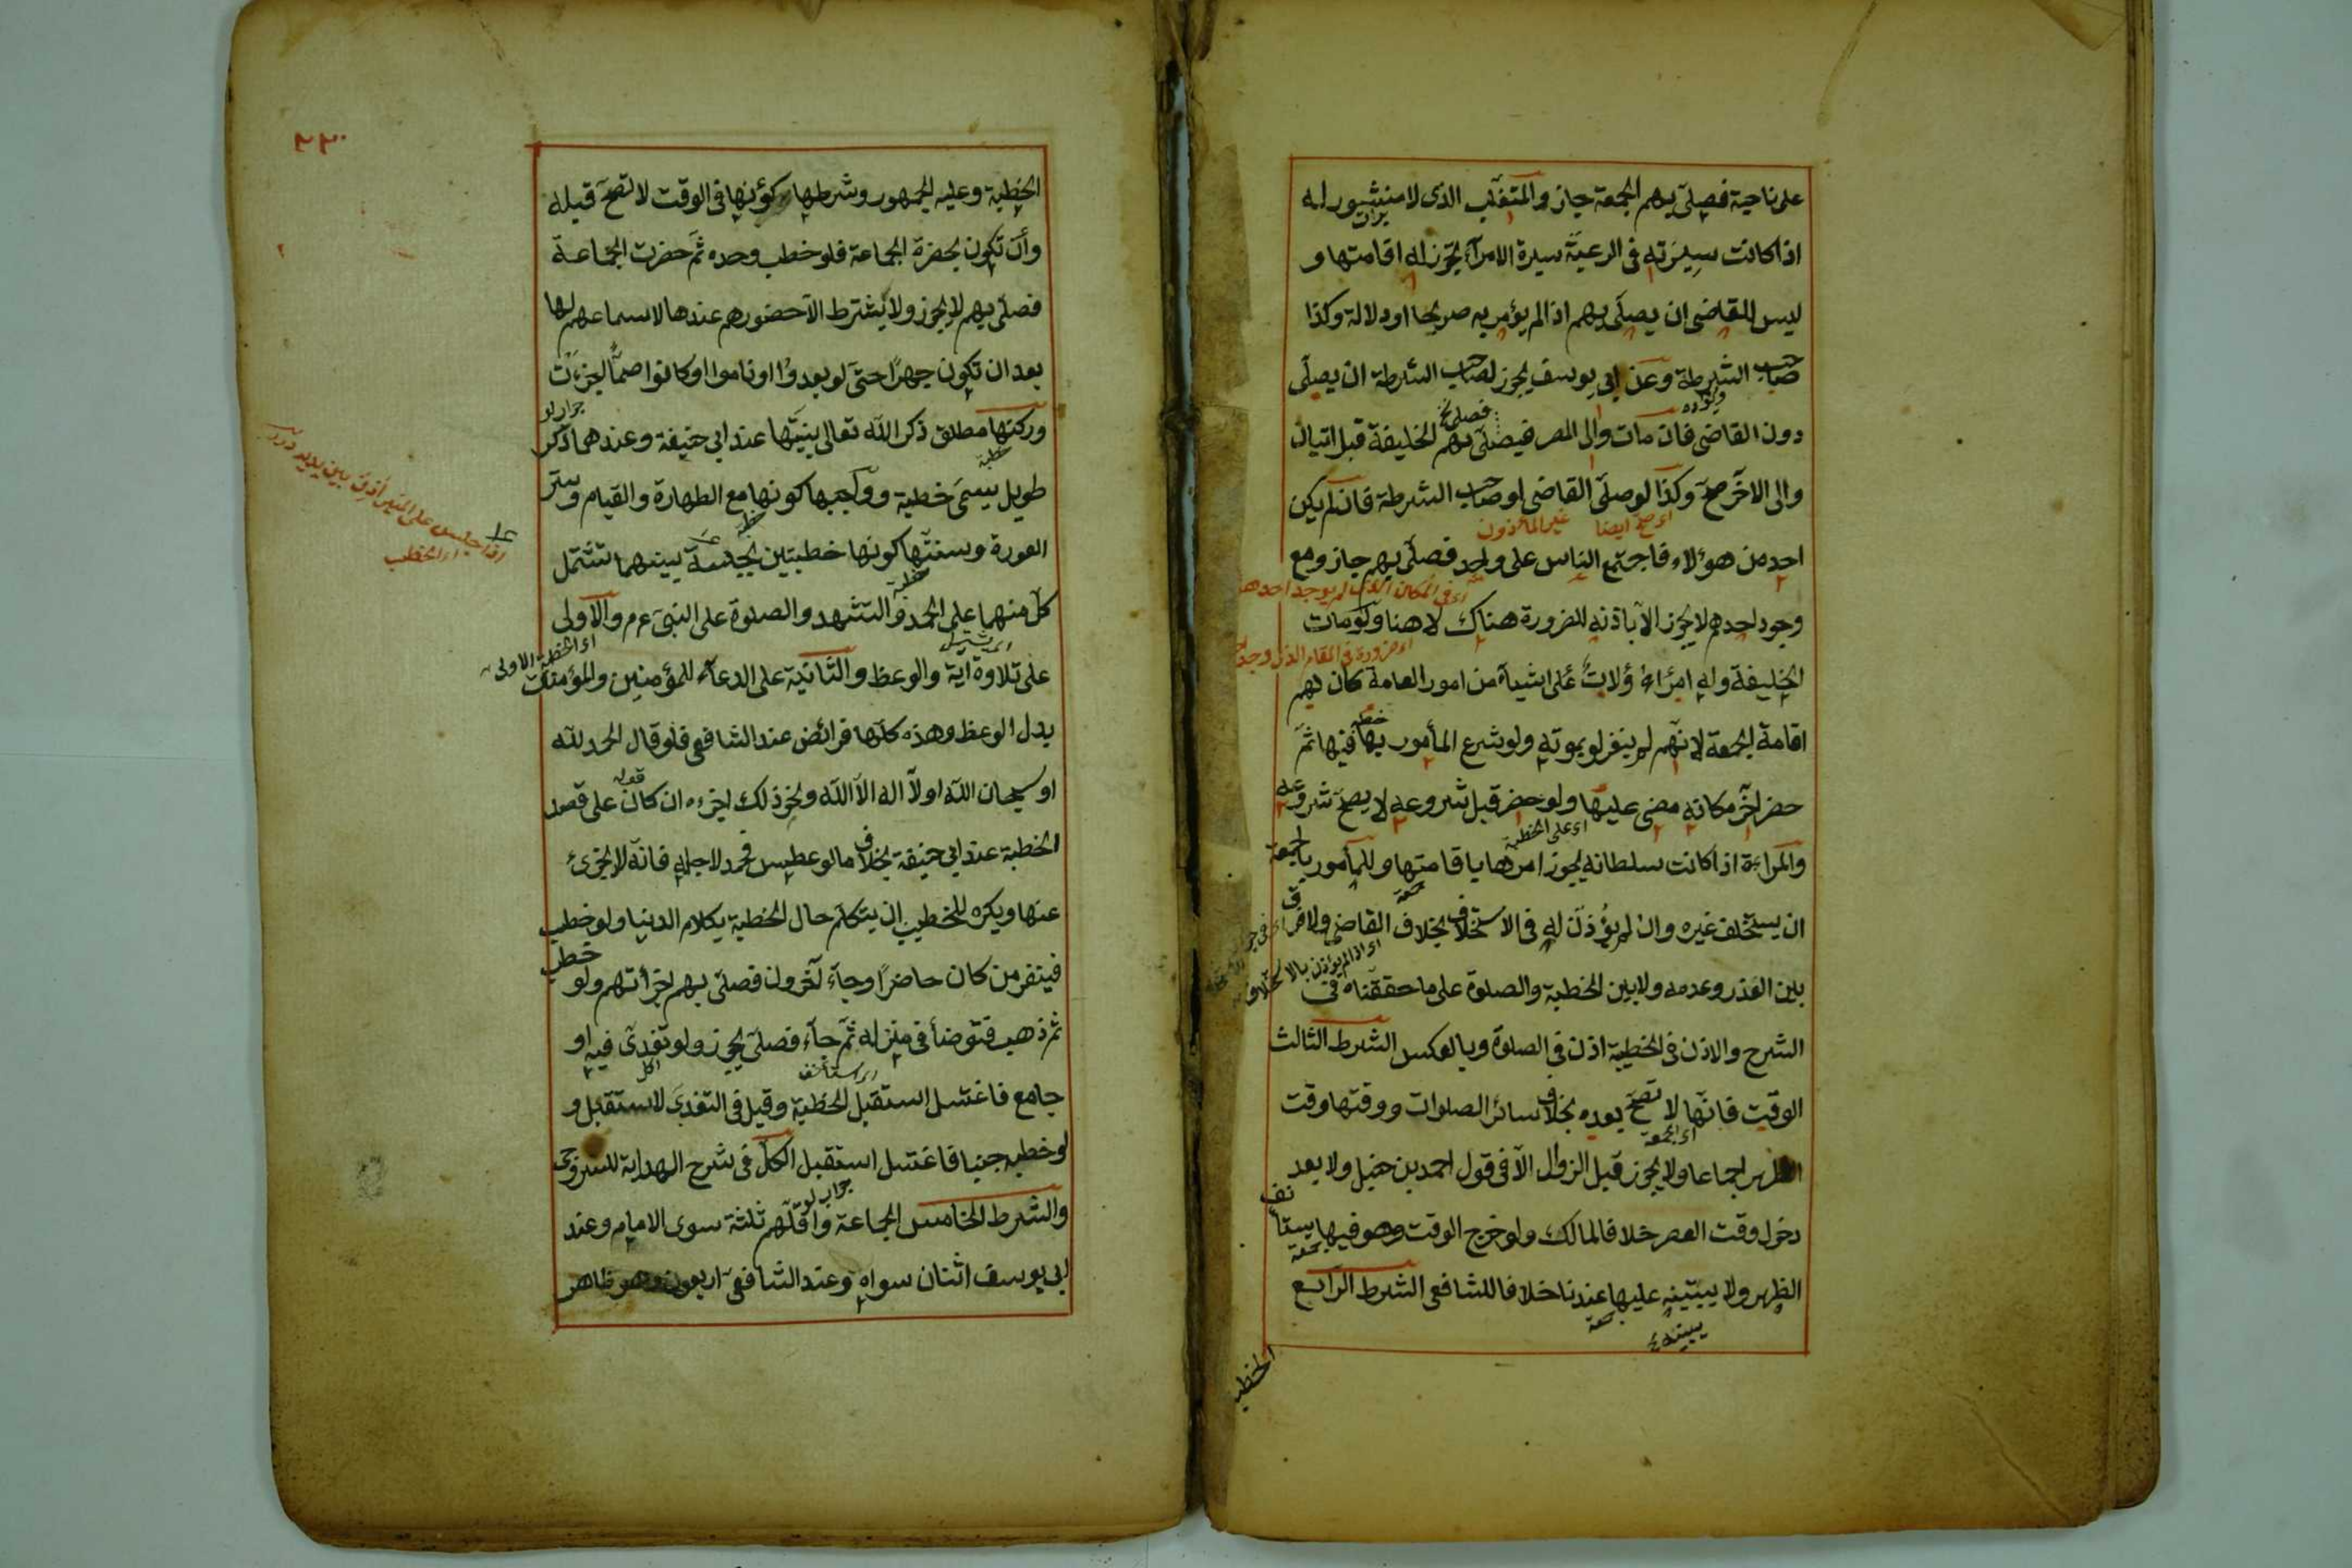 على ناحية فصلى بهم الجمعة جاز والمتغلب الذى لا منشور له
برات
اذا كانت سيرته فى الرعية سيرة الامرآء يجوز له اقامتها و
ليس للقاضى ان يصلى بهم اذا لم يؤمر به صريحا او دلالة وكذا
صاحب الشرطة وعن ابى يوسف يجوز لصاحب الشرطة ان يصلى
دون القاضى فان مات والى المصر فيصلى بهم الخليفة قبل اتيان
والى الآخر صح وكذا لو صلى القاضى او صاحب الشرطة فان لم يكن
اى صح ايضا غير المأذون
احد من هؤلاء فاجتمع الناس على واحد فصلى بهم جاز ومع
اى فى المكان الذى لم يوجد احدهم
وجود احدهم لا يجوز الا باذنه للضرورة هناك لا هنا ولو مات
الخليفة وله امرآء ولات على اشيآء من امور العامة كان لهم
اقامة الجمعة لانهم لم ينعزلوا بموته ولو شرع المأمور بها فيها ثم
حضر آخر مكانه مضى عليها ولو حضر قبل شروعه لا يصح شروعه
اى على الخطبة
والمراءة اذا كانت سلطانه يجوز امرها باقامتها وللمأمور بالجمعة
ان يستخلف غيره وان لم يؤذن له فى الاستخلاف بخلاف القاضى ولا فرق
اى اذا لم يؤذن بالاستخلاف
بين العذر وعدمه ولا بين الخطبة والصلوة على ما حققناه فى
الشرح والاذن فى الخطبة اذن فى الصلوة وبالعكس الشرط الثالث
الوقت فانها لا تصح بعده بخلاف سائر الصلوات ووقتها وقت
اى الجمعة
الظهر اجماعا ولا يجوز قبل الزوال الا فى قول احمد بن حنبل ولا بعد
دخول وقت العصر خلافا لمالك ولو خرج الوقت وهو فيها يستأنف
جمعة
الظهر ولا يبتنيه عليها عندنا خلافا للشافعى الشرط الرابع
جمعة
الخطبة
٢٣٠
الخطبة وعليه الجمهور وشرطها كونها فى الوقت لا تصح قبله
وان تكون بحضرة الجماعة فلو خطب وحده ثم حضرت الجماعة
فصلى بهم لا يجوز ولا يشترط الا حضورهم عندها لا سماعهم لها
بعد ان تكون جهرا حتى لو بعدوا او ناموا او كانوا صما لجزءت
جواب لو
وركنها مطلق ذكر الله تعالى بنيتها عند ابى حنيفة وعندهما ذكر
خطبة
طويل يسمى خطبة وواجبها كونها مع الطهارة والقيام وستر
العورة وسنتها كونها خطبتين بجلسة بينهما تشتمل
خطبة
كل منهما على الحمد والتشهد والصلوة على النبى ءم والاولى
اى الخطبة الاولى
على تلاوة اية والوعظ والثانية على الدعآء للمؤمنين والمؤمنات
بدل الوعظ وهذه كلها فرائض عند الشافعى فلو قال الحمد لله
قوله
او سبحان الله او لا اله الا الله ونحو ذلك اجزءه ان كان على قصد
الخطبة عند ابى حنيفة بخلاف ما لو عطس فحمد لاجله فانه لا يجزئ
عنها ويكره للخطيب ان يتكلم حال الخطبة بكلام الدنيا ولو خطب
فينفر من كان حاضرا وجآء آخرون فصلى بهم اجزأتهم ولو خطب
ثم ذهب فتوضأ فى منزله ثم جآء فصلى يجوز ولو تغدى فيه او
اكل
اى استأنف
جامع فاغتسل استقبل الخطبة وقيل فى التغدى لا ستقبل و
لو خطب جنبا فاغتسل استقبل الكل فى شرح الهداية للسروجى
جواب لو
والشرط الخامس الجماعة واقلهم ثلثة سوى الامام وعند
ابى يوسف اثنان سواه وعند الشافعى اربعون وهو ظاهر
اذا جلس على المنبر أذن بين يديه
اى الخطب